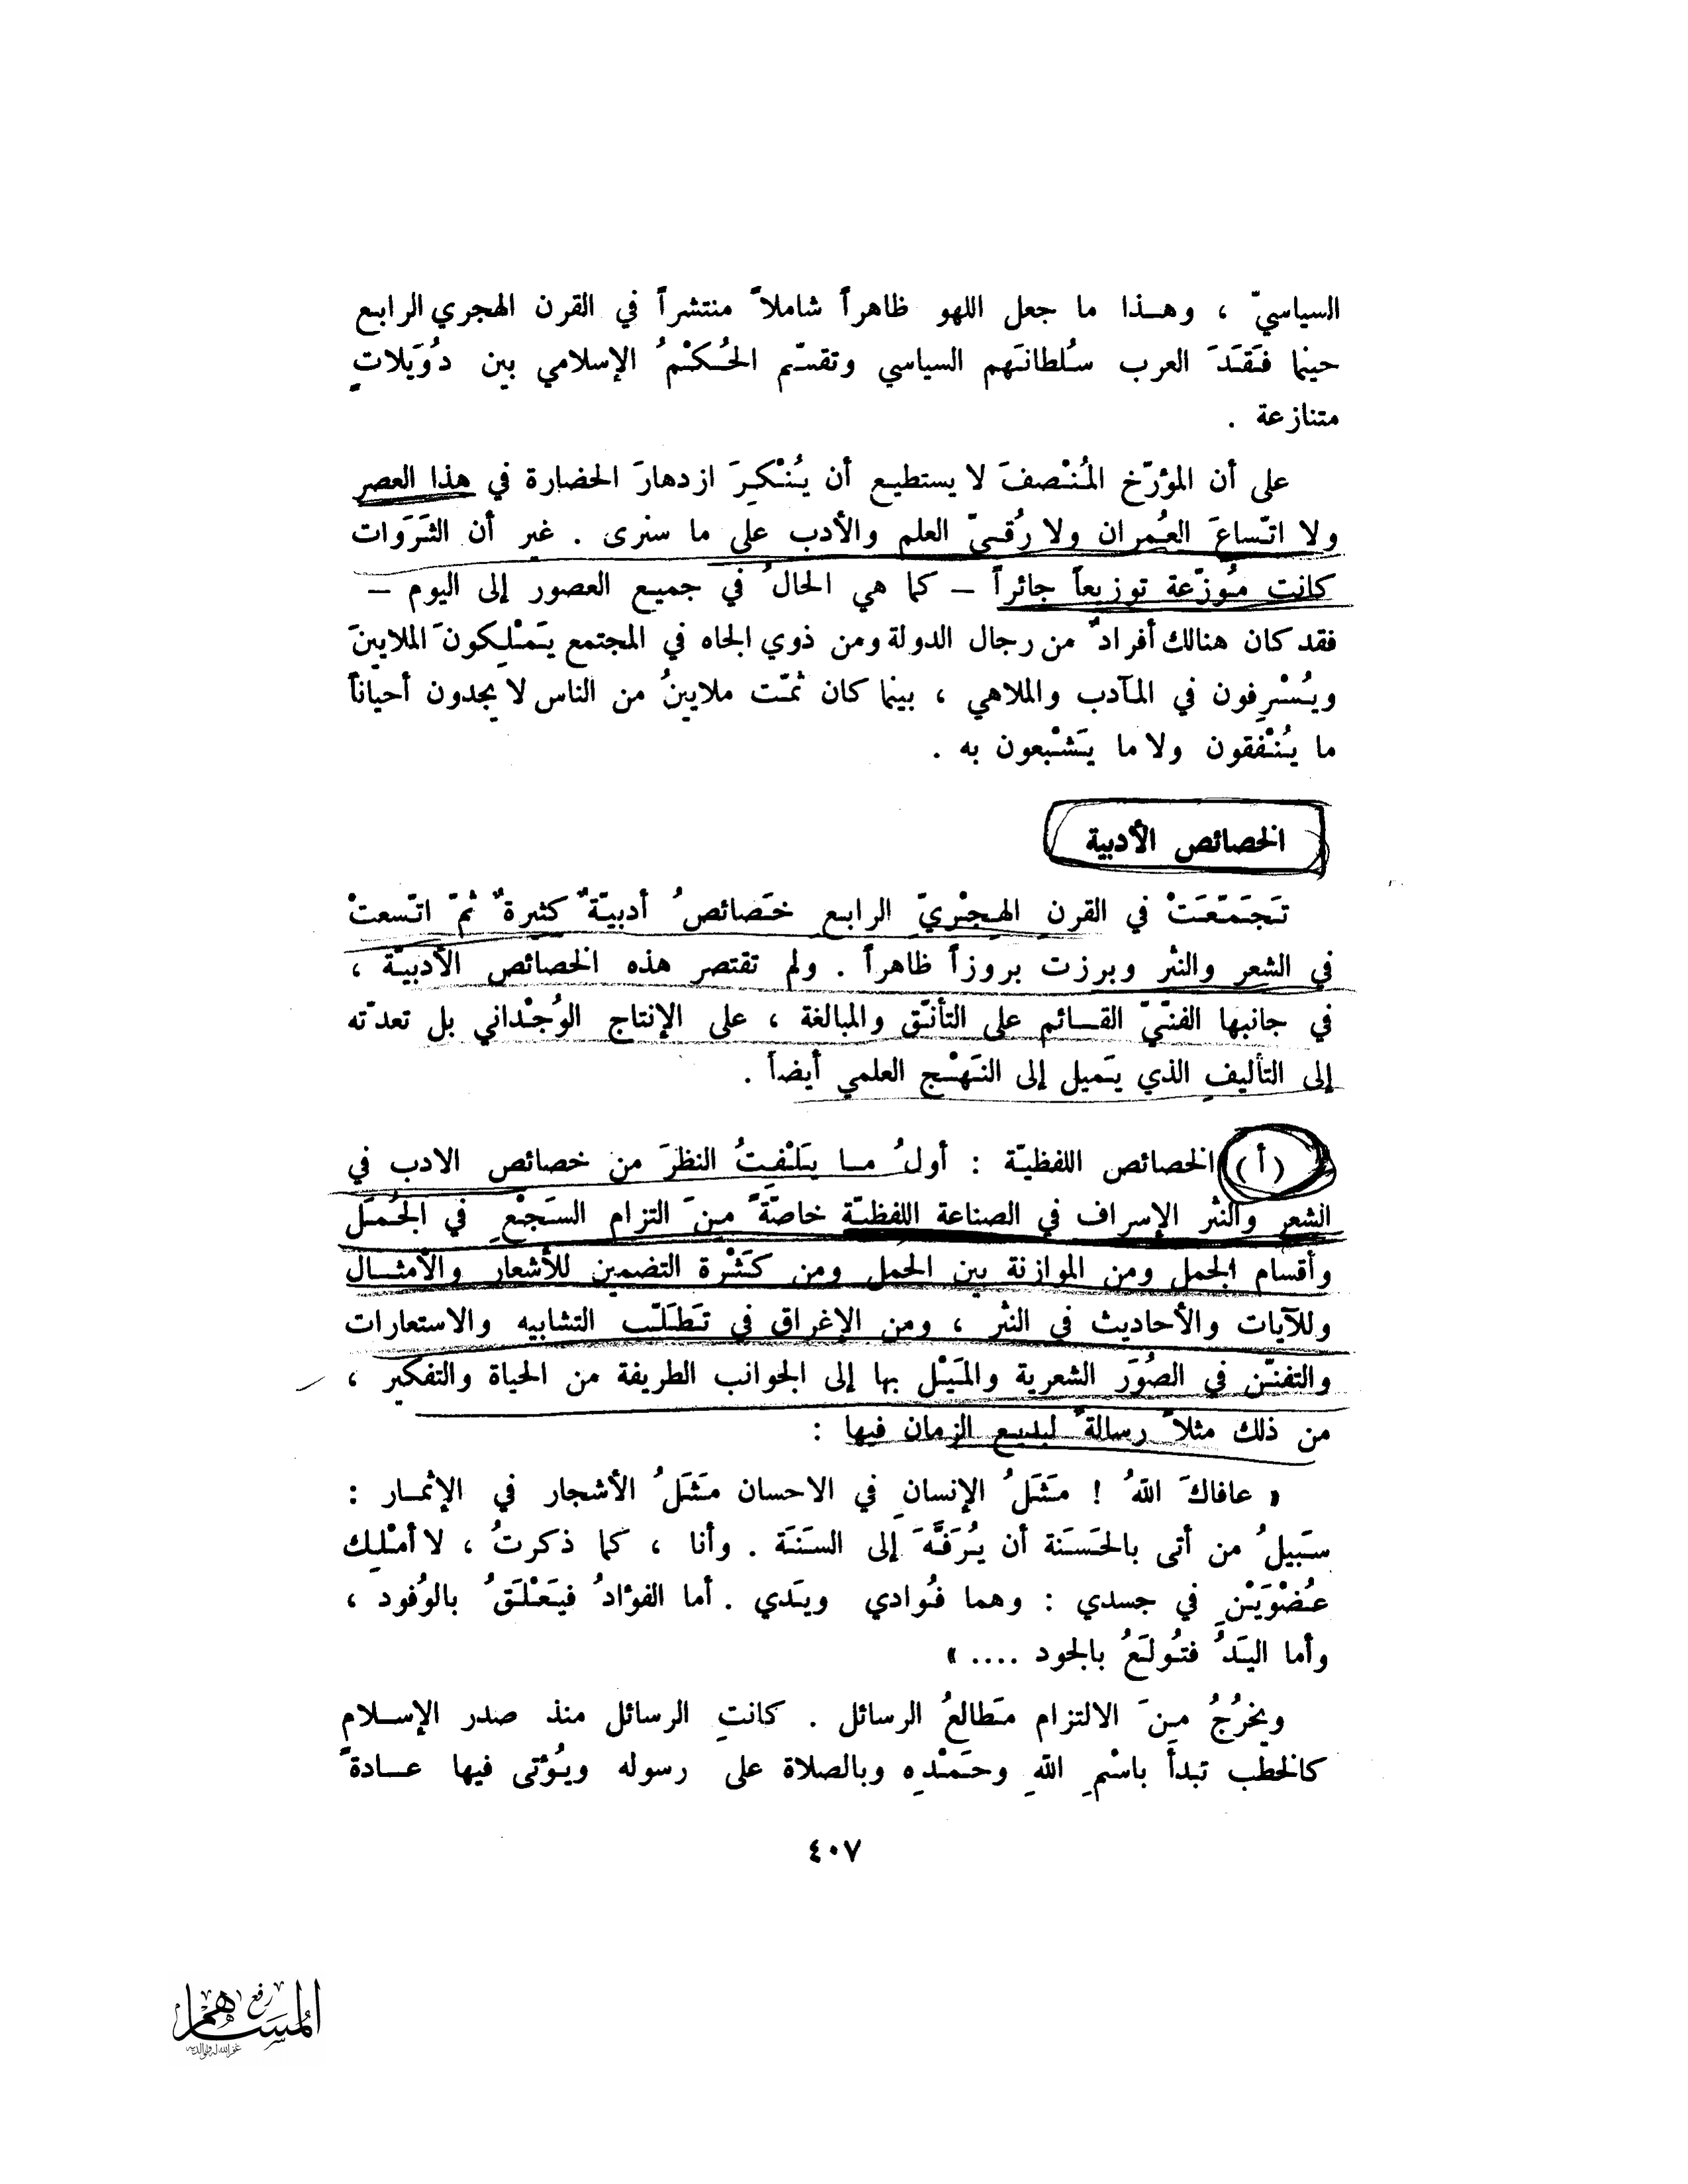 السياسيّ ، وهـذا ما جعل اللهو ظاهراً شاملاً منتشراً في القرن الهجري الرابع
حينما فَقَدَ العرب سُلطانَهم السياسي وتقسّم الحُكْمُ الإسلامي بين دُوَيلاتٍ
متنازعة .
على أن المؤرّخ المُنْصفَ لا يستطيع أن يُنْكِرَ ازدهارَ الحضارة في هذا العصر
ولا اتّساعَ العُمران ولا رُقيّ العلم والأدب على ما سنرى . غير أن الثَرَوات
كانت مُوزّعة توزيعاً جائراً – كما هي الحالُ في جميع العصور إلى اليوم –
فقد كان هنالك أفرادٌ من رجال الدولة ومن ذوي الجاه في المجتمع يَمْلِكونَ الملايينَ
ويُسْرِفون في المآدب والملاهي ، بينما كان ثمّت ملايينُ من الناس لا يجدون أحياناً
ما يُنْفَقون ولا ما يَشْبعون به .
الخصائص الأدبية
تَجَمّعَتْ في القرنِ الهِجْريّ الرابع خَصائصُ أدبيّةٌ كثيرةٌ ثمّ اتّسعتْ
في الشعر والنثر وبرزت بروزاً ظاهراً . ولم تقتصر هذه الخصائص الأدبيّة ،
في جانبها الفنّيّ القـائم على التأنّق والمبالغة ، على الإنتاج الوُجْداني بل تعدّته
إلى التأليفِ الذي يَميل إلى النَهْج العلمي أيضاً .
(أ) الخصائص اللفظيّة : أولُ مـا يَلْفِتُ النظرَ من خصائص الادب في
الشعر والنثر الإسراف في الصناعة اللفظيّة خاصّةً مِنَ التزام السَجْعِ في الجُمَل
وأقسام الجمل ومن الموازنة بين الجمل ومن كَثْرة التضمين للأشعار والأمثـال
وللآيات والأحاديث في النثر ، ومن الإغراق في تَطَلّب التشابيه والاستعارات
والتفنّن في الصُوَر الشعرية والمَيْل بها إلى الجوانب الطريفة من الحياة والتفكير ،
من ذلك مثلاً رسالةً لبديع الزمان فيها :
« عافاكَ اللهُ ! مَثَلُ الإنسانِ في الاحسان مَثَلُ الأشجار في الإثمـار :
سَبيلُ من أتى بالحَسَنة أن يُرَفَّهَ إلى السَنَة . وأنا ، كما ذكرتُ ، لا أمْلِك
عُضْوَيْنِ في جسدي : وهما فُوادي ويَدي . أما الفؤادُ فيَعْلَقُ بالوُفود ،
وأما اليَدُ فتُولَعُ بالجود .... »
ويخرُجُ مِنَ الالتزام مَطالعُ الرسائل . كانتِ الرسائل منذ صدر الإسـلامِ
كالخطب تبدأ باسْمِ اللهِ وحَمْدِه وبالصلاة على رسوله ويُؤتى فيها عـادةً
٤٠٧
رفع
المساهم
غفر الله له ولوالديه